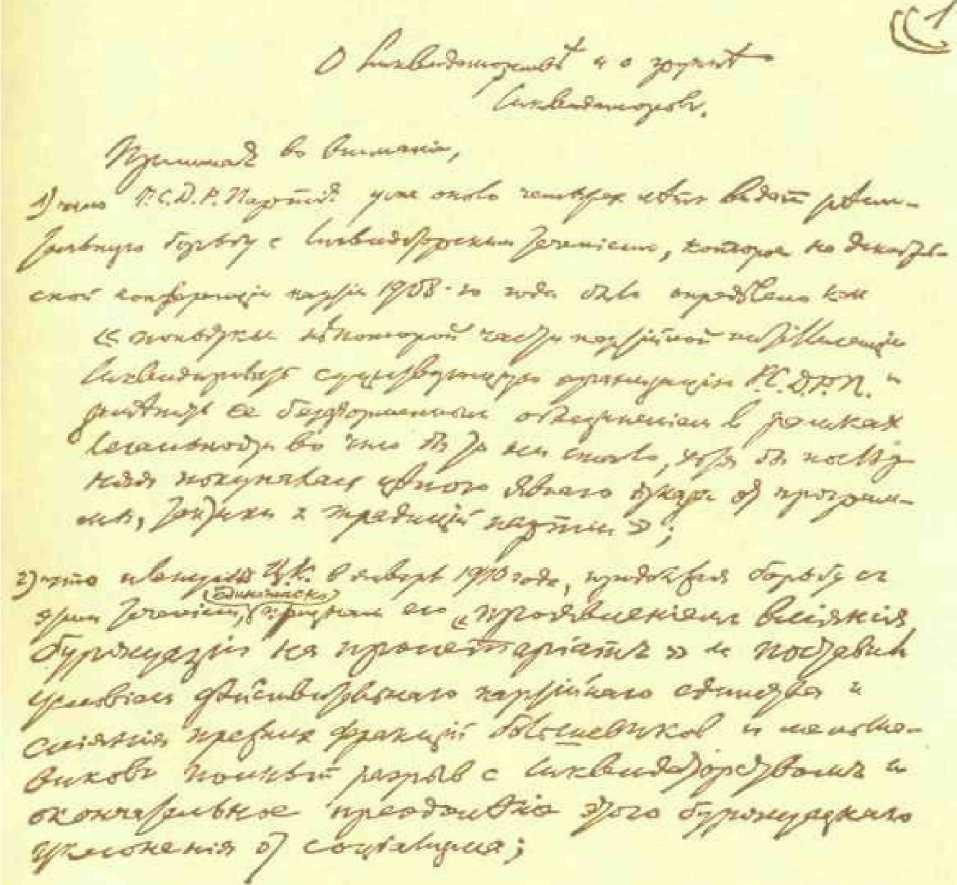 1
О ликвидаторствѣ и о группѣ
ликвидаторовъ.
Принимая во вниманіе,
1) что Р.С.Д.Р. Партія уже около четырех лѣтъ ведетъ рѣши-
тельную борьбу с ликвидаторским теченіемъ, которое на декабрь-
ской конференціи партіи 1908-го года было опредѣлено как
«попытки нѣкоторой части партійной интеллигенціи
ликвидировать существующую организацію Р.С.Д.Р.П. и
замѣнить ее безформенным объединеніем в рамках
легальности во что бы то ни стало, хотя бы послѣд-
няя покупалась цѣною явнаго отказа от програм-
мы, тактики и традицій партіи»;
2) что пленумъ Ц.К. в январѣ 1910 года, продолжая борьбу съ
этим теченіем, (единогласно) признал его «проявленіемъ вліянія
буржуазіи на пролетаріатъ» и поставил
условіем дѣйствительнаго партійнаго единства и
сліянія прежних фракцій большевиков и меньше-
виковъ полный разрыв с ликвидаторствомъ и
окончательное преодолѣніе этого буржуазнаго
уклоненія от соціализма;